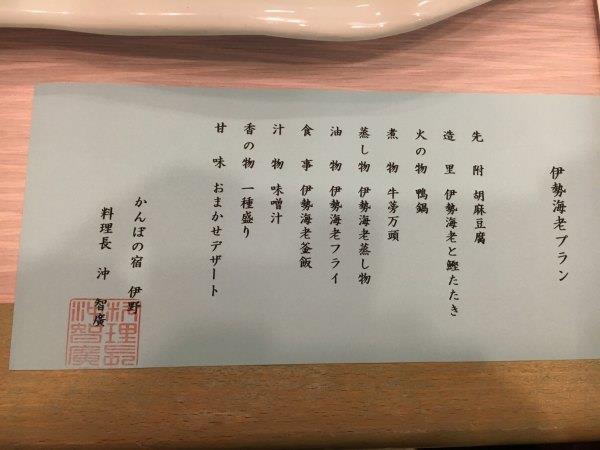 伊勢海老プラン
先附 胡麻豆腐
造里 伊勢海老と鰹たたき
火の物 鴨鍋
煮物 牛蒡万頭
蒸し物 伊勢海老蒸し物
油物 伊勢海老フライ
食事 伊勢海老釜飯
汁物 味噌汁
香の物 一種盛り
甘味 おまかせデザート
かんぽの宿 伊野
料理長 沖 智廣
料理長
沖智廣